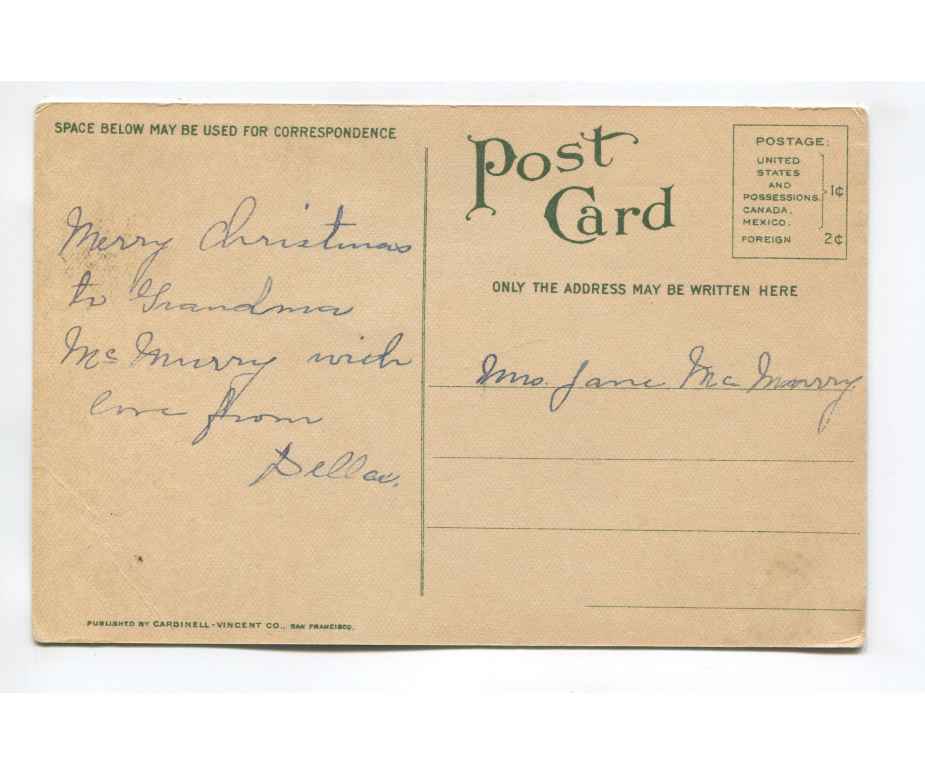 SPACE BELOW MAY BE USED FOR CORRESPONDENCE
Merry Christmas
to Grandma
Mc Murry with
love from
Della.
PUBLISHED BY CARDINELL-VINCENT CO., SAN FRANCISCO.
Post
Card
POSTAGE:
UNITED
STATES
AND
POSSESSIONS
CANADA,
MEXICO.
1¢
FOREIGN 2¢
ONLY THE ADDRESS MAY BE WRITTEN HERE
Mrs. Jane Mc Murry